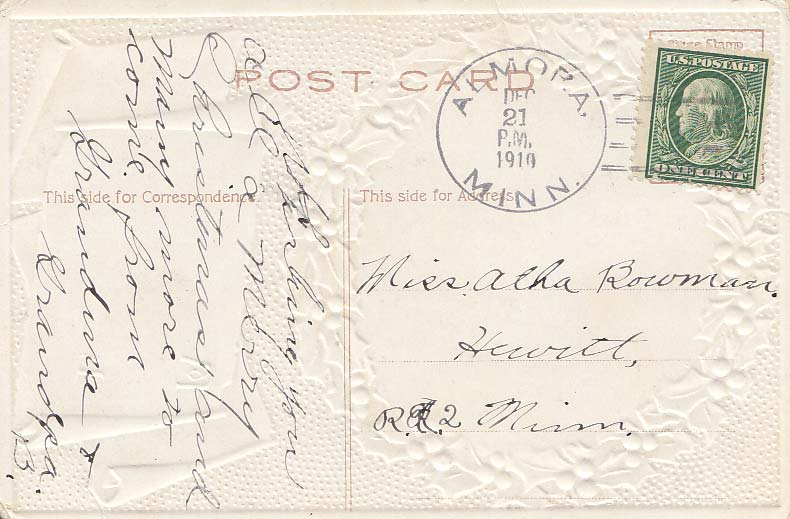 POST CARD
Place Stamp
U.S. POSTAGE
ONE CENT
ALMORA,
DEC
21
P.M.
1910
MINN.
This side for Correspondence.
This side for Address.
all wishing you
a Merry
Christmas and
Many more to
come from
Grandma &
Grandpa.
B.
Miss. Alha Bowman.
Hewitt,
R. 2 Minn.